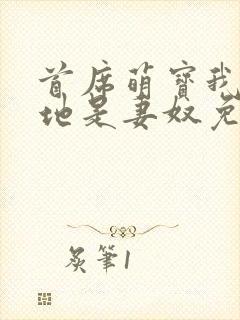 首席萌寶我
地是妻奴免
炙筆1